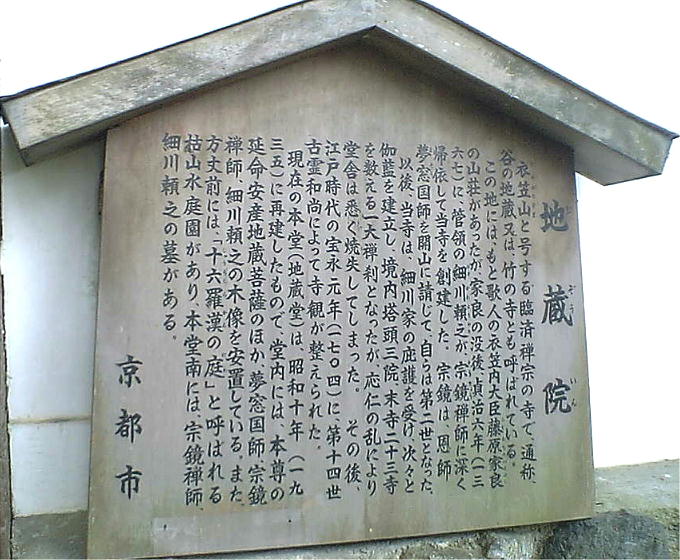 地蔵院
じぞういん
衣笠山と号する臨済禅宗の寺で、通称、
谷の地蔵又は、竹の寺とも呼ばれている。
この地には、もと歌人の衣笠内大臣藤原家良
の山荘があったが、家良の没後、貞治六年（一三
六七）に、管領の細川頼之が、宗鏡禅師に深く
帰依して当寺を創建した。宗鏡は、恩師
夢窓国師を開山に請じて、自らは第二世となった。
以後、当寺は、細川家の庇護を受け、次々と
伽藍を建立し、境内塔頭三院、末寺二十三寺
を数える一大禅刹となったが、応仁の乱により
堂舎は悉く焼失してしまった。その後、
江戸時代の宝永元年（一七〇四）に第十四世
古霊和尚によって寺観が整えられた。
現在の本堂（地蔵堂）は、昭和十年（一九
三五）に再建したもので、堂内には、本尊の
延命安産地蔵菩薩のほか夢窓国師、宗鏡
禅師、細川頼之の木像を安置している。また
方丈前には、「十六羅漢の庭」と呼ばれる
枯山水庭園があり、本堂南には、宗鏡禅師、
細川頼之の墓がある。
京都市